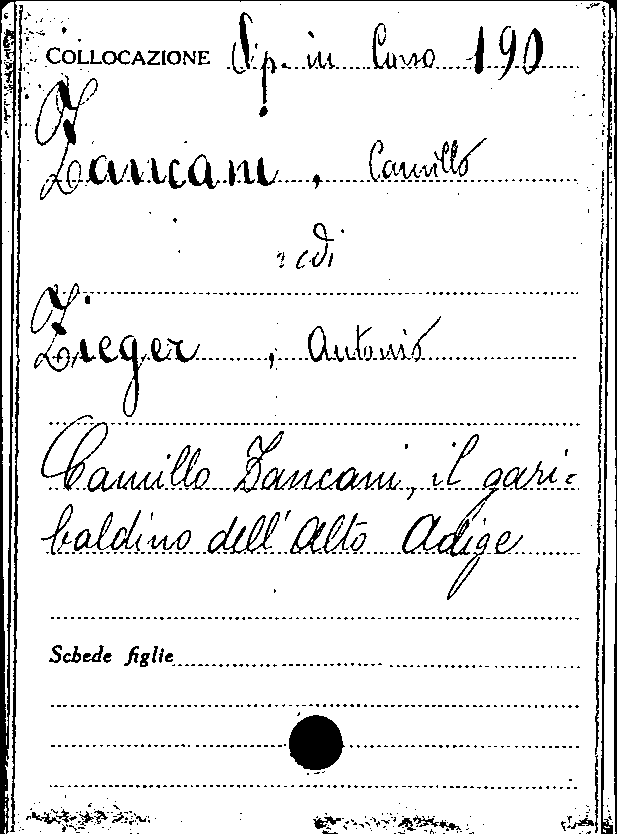 COLLOCAZIONE Op. in Corso 190
Zancani, Camillo
vedi
Zieger, Antonio
Camillo Zancani, il gari=
baldino dell'Alto Adige
Schede figlie